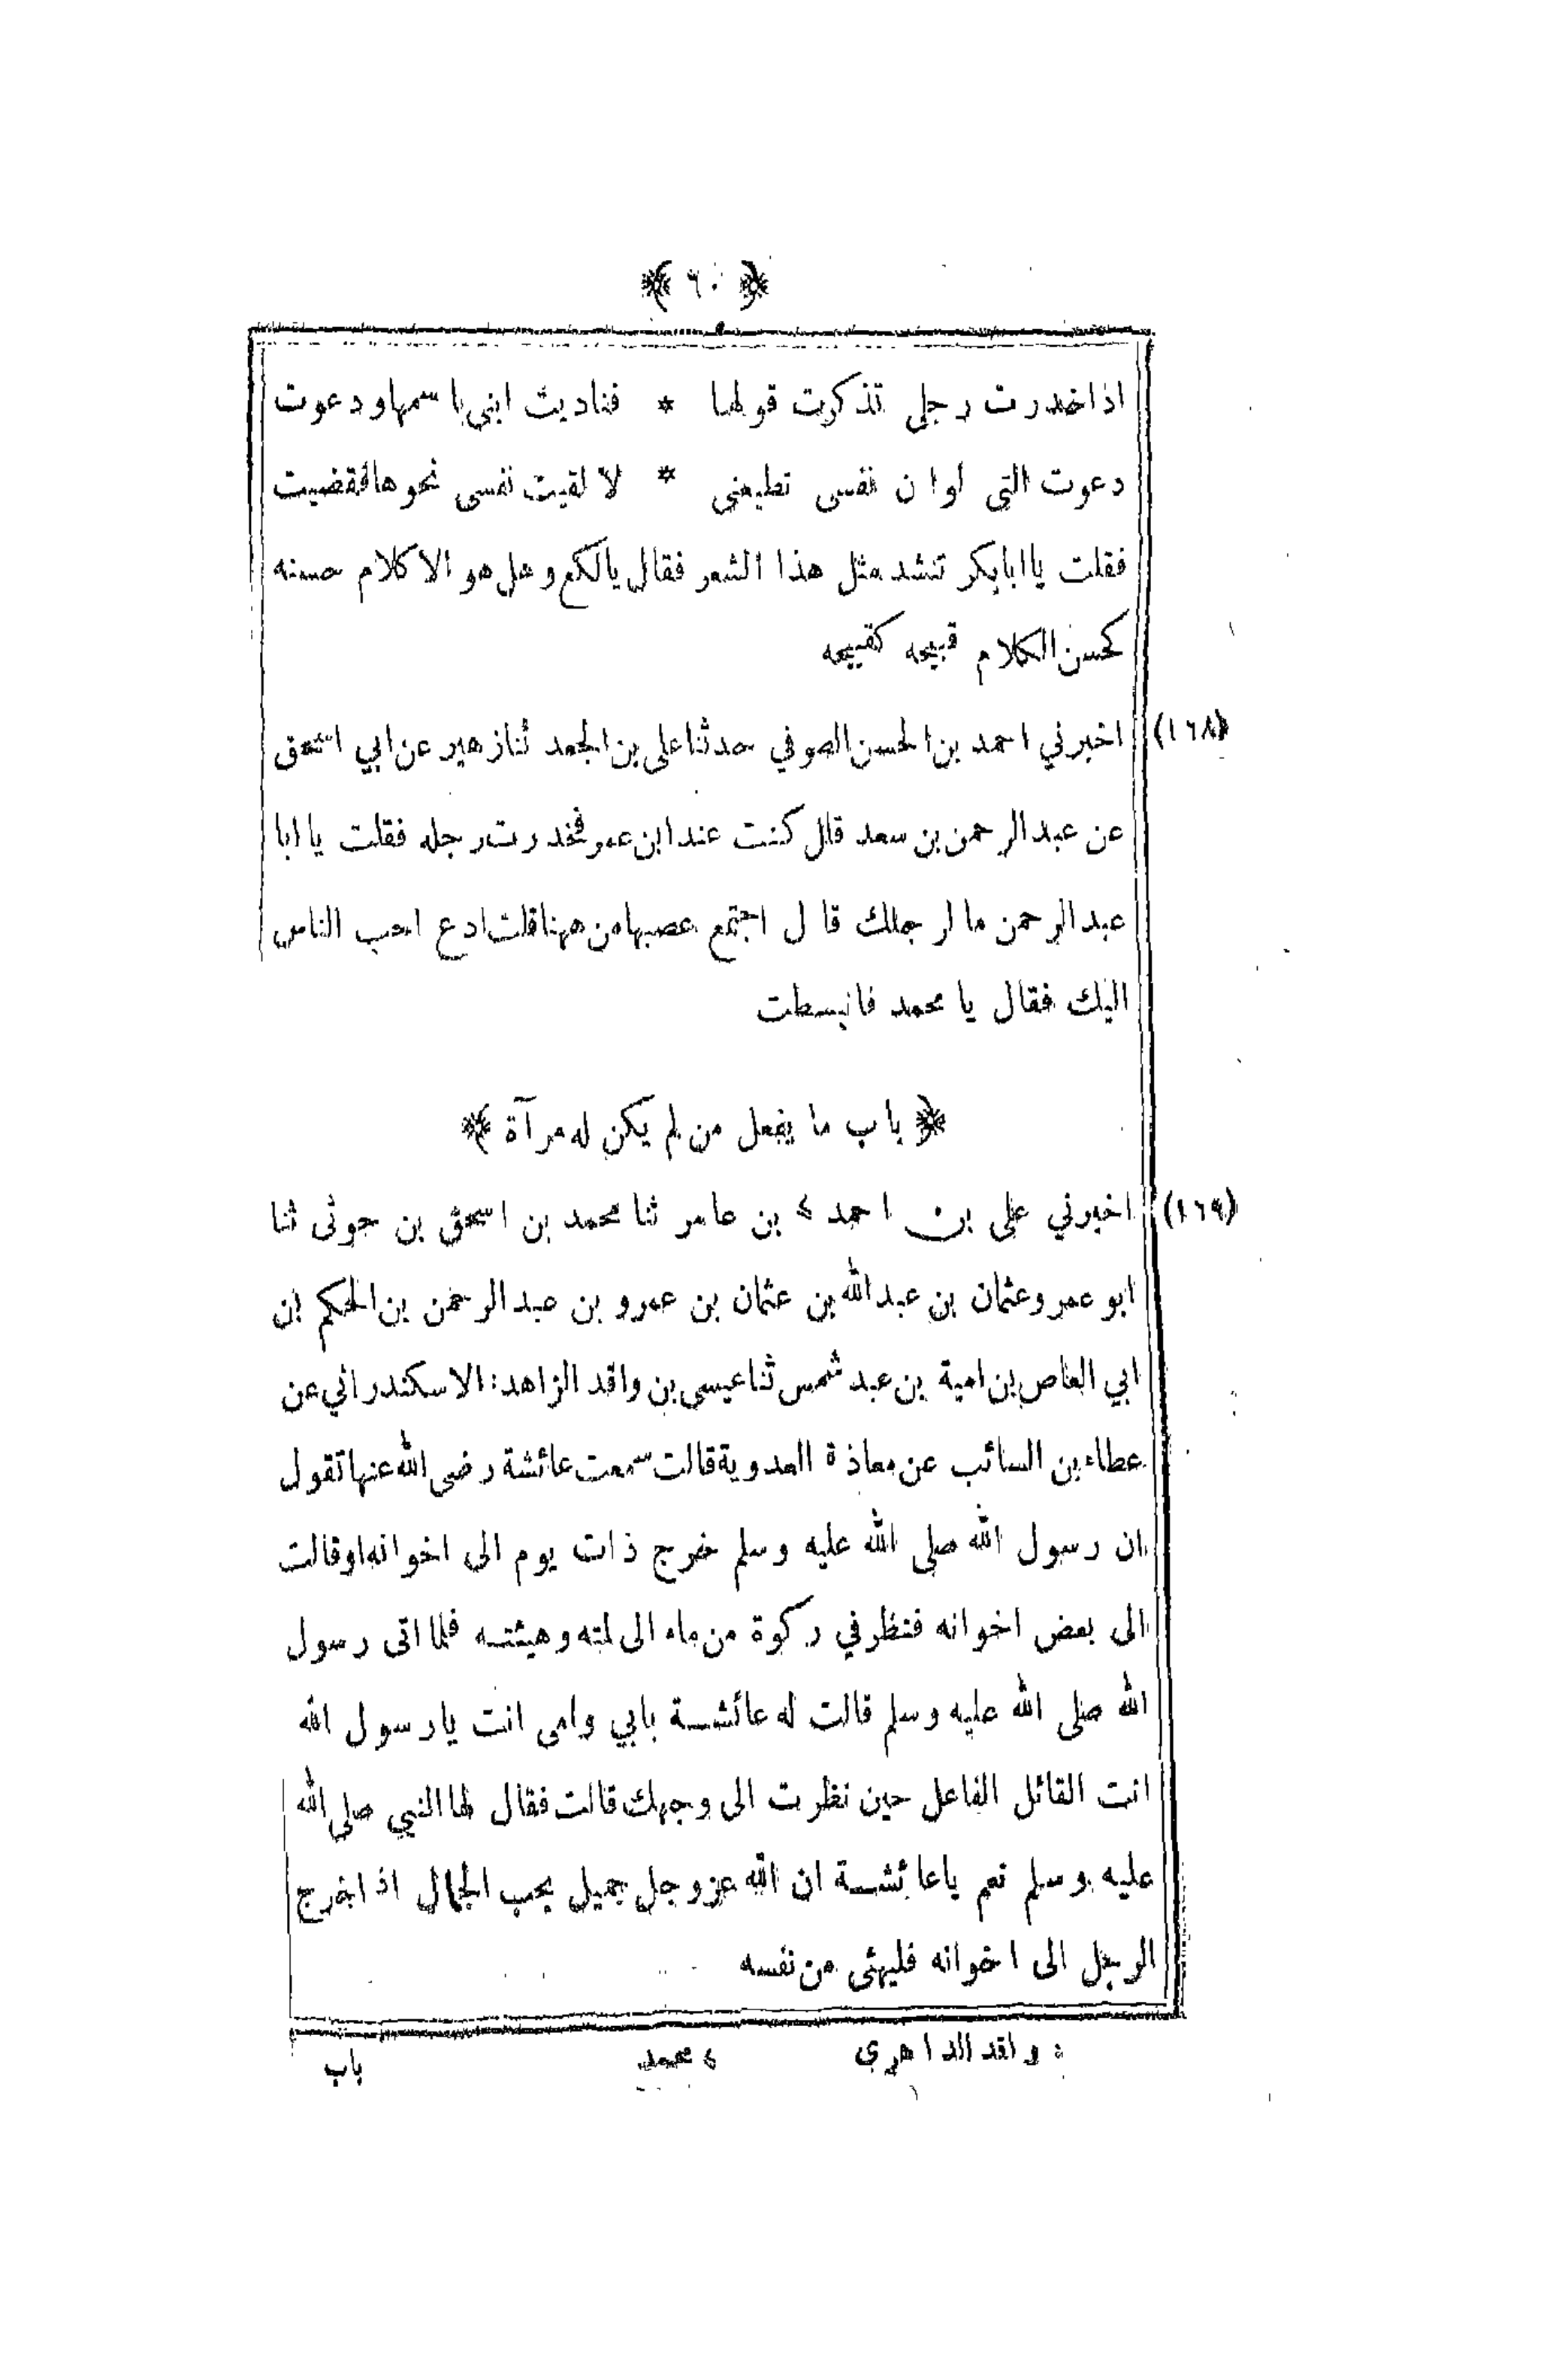 ﴿ ٦٠ ﴾
اذا خدرت رجلي تذكرت قولها * فناديت ابنى باسمها ودعوت
دعوت التي لوا ن نفسى تطيعنى * لا لقيت نفسى نحوها فقضيت
فقلت يا ابا بكر تنشد مثل هذا الشعر فقال يالكع وهل هو الا كلام حسنه
كحسن الكلام قبيحه كقبيحه
(١٦٨) اخبرني احمد بن الحسن الصوفي حدثنا على بن الجعد ثنا زهير عن ابي اسحق
عن عبد الرحمن بن سعد قال كنت عند ابن عمر فخدرت رجله فقلت يا ابا
عبد الرحمن ما لر جلك قا ل اجتمع عصبها من ههنا قلت ادع احب الناس
اليك فقال يا محمد فانبسطت
﴿ باب ما يفعل من لم يكن له مرآة ﴾
(١٦٩) اخبرني على بن احمد ء بن عامر ثنا محمد بن اسحق بن حوثى ثنا
ابو عمر وعثمان بن عبد الله بن عثمان بن عمرو بن عبد الرحمن بن الحكم بن
ابي العاص بن امية بن عبد شمس ثنا عيسى بن واقد الزاهد: الاسكندراني عن
عطاء بن السائب عن معاذة العدوية قالت سمعت عائشة رضى الله عنها تقول
ان رسول الله صلى الله عليه وسلم خرج ذات يوم الى اخوانه او قالت
الى بعض اخوانه فنظر في ركوة من ماء الى لمته وهيئته فلما اتى رسول
الله صلى الله عليه وسلم قالت له عائشة بابي وامى انت يا رسول الله
انت القائل الفاعل حين نظرت الى وجهك قالت فقال لها النبي صلى الله
عليه وسلم نعم يا عائشة ان الله عز وجل جميل يحب الجمال اذا خرج
الرجل الى اخوانه فليهئى من نفسه
: واقد الداهرى ء محمد باب